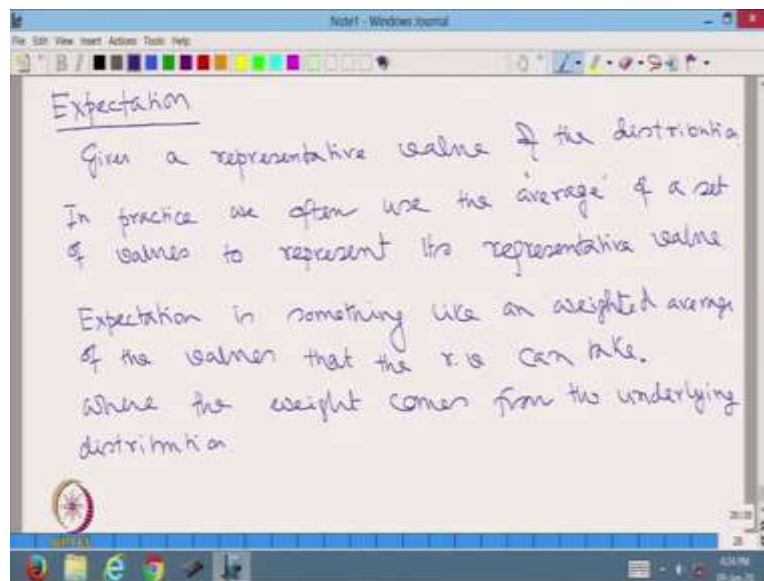 Note1 - Windows Journal
File Edit View Insert Actions Tools Help
Expectation
Gives a representative value of the distribution
In practice we often use the 'average' of a set
of values to represent its representative value
Expectation is something like an weighted average
of the values that the r.v can take.
where the weight comes from the underlying
distribution.
NPTEL